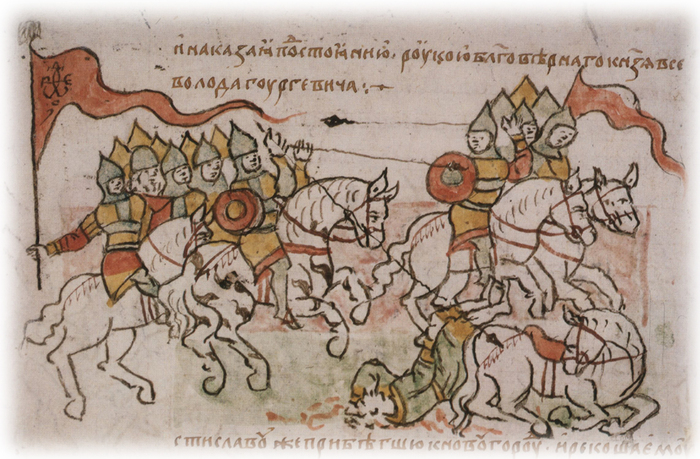 и наказаⷩ по достоꙗнию. роукою бл҃говѣрнаго кн҃зѧ все
волода гоургевича
стиславоу же прибѣгшю к новоугородоу · и рекоша емоу